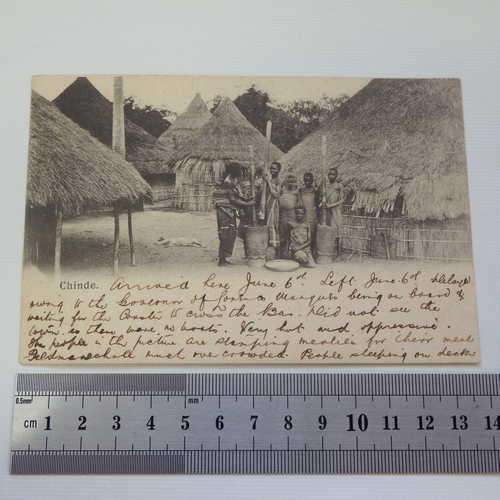 Chinde. Arrived here June 6th Left June 6th Delayed
owing to the Governor of Lorenco Marques being on board &
waiting for the to cross the Bar. Did not see the
town as there were no boats. Very hot and oppressive.
The people in the picture are stamping mealies for their meal
Feldmarschall much over crowded. People sleeping on decks
0.5mm mm
cm 1 2 3 4 5 6 7 8 9 10 11 12 13 14